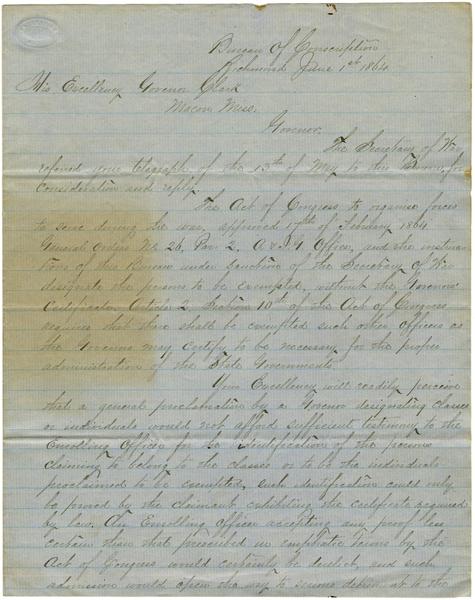 Bureau of Conscription
Richmond June 1st 1864
His Excellency Govenor Clark
Macon Miss.
Govenor
The Secretary of War
refered your telegraph of the 13th of May to this Bureau for
consideration and reply.
The Act of Congress to organise forces
to serve during the war, approved 17th of February 1864
General Orders No 26, Par 2. A & I G Office, and the instruc
tions of this Bureau under sanction of the Secretary of War
designate the persons to be exempted, without the Govenors
Certificate. Article 2 Section 10th of the Act of Congress
requires that there shall be exempted such other officers as
the Govenors may certify to be necessary for the proper
administration of the State Governments.
Your Excellency will readily perceive
that a general proclamation by a Govenor designating classes
or individuals would not afford sufficient testimony to the
Enrolling Officer for the identification of the persons
claiming to belong to the classes or to be the individuals
proclaimed to be exempted, such identification could only
be proved by the claimant exhibiting the certificate required
by law. An Enrolling Officer accepting any proof less
certain than that prescribed in emphatic terms by the
Act of Congress would certainly be derelict, and such
admission would open the way to serious as to the